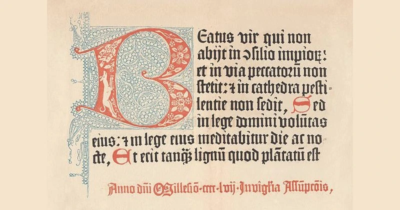 Beatus vir qui non
abijt in ↄsilio impioꝝ:
et in via peccatorū non
stetit: ⁊ in cathedra pesti
lentie non sedit, Sed
in lege domini volūtas
eius: ⁊ in lege eius meditabitur die ac no-
cte, Et erit tanqꝫ lignū quod plātatū est
Anno dn̄i Millesiō-cccc-lvij-Invigīa Assūpcōis,